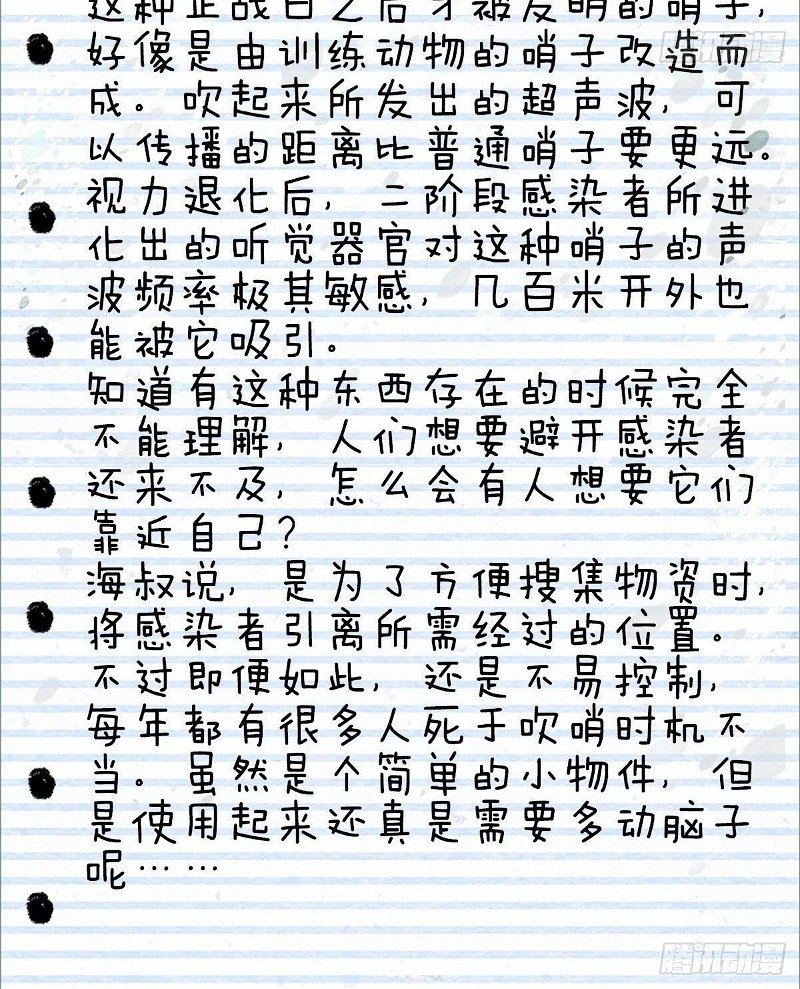 这种在战白之后才被发明的哨子，
好像是由训练动物的哨子改造而
成。吹起来所发出的超声波，可
以传播的距离比普通哨子要更远。
视力退化后，二阶段感染者所进
化出的听觉器官对这种哨子的声
波频率极其敏感，几百米开外也
能被它吸引。
知道有这种东西存在的时候完全
不能理解，人们想要避开感染者
还来不及，怎么会有人想要它们
靠近自己？
海叔说，是为了方便搜集物资时，
将感染者引离所需经过的位置。
不过即便如此，还是不易控制，
每年都有很多人死于吹哨时机不
当。虽然是个简单的小物件，但
是使用起来还真是需要多动脑子
呢……
腾讯动漫
腾讯动漫